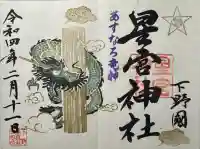 下野國
星宮神社
あすなろ竜神
令和四年二月十一日